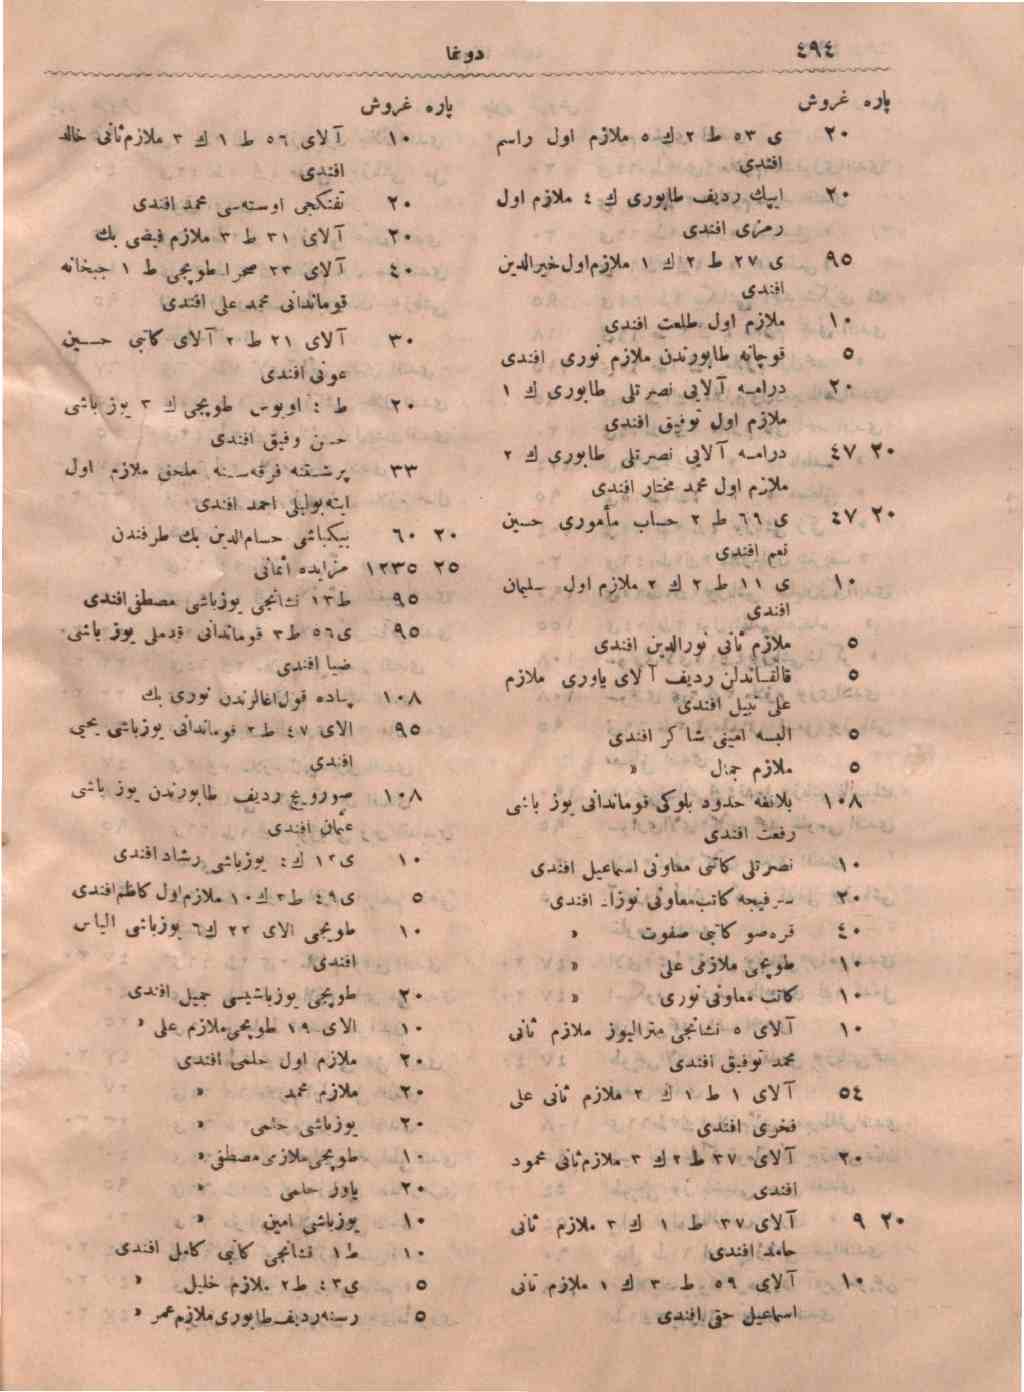 ٤٩٤ دوغا
پاره غروش
٢٠ ی ٥٣ ط ٢ ك ٥ ملازم اول راسم
افندی
٢٠ ایپك ردیف طابوری ك ٤ ملازم اول
رمزی افندی
٩٥ ی ٢٧ ط ٢ ك ١ ملازم اول خیرالدین
افندی
١٠ ملازم اول طلعت افندی
٥ قوچانه طابورندن ملازم نوری افندی
٢٠ درامه آلایی نصرتلی طابوری ك ١
ملازم اول توفیق افندی
٢٠ ٤٧ درامه آلایی نصرتلی طابوری ك ٢
ملازم اول محمد مختار افندی
٢٠ ٤٧ ی ٦٩ ط ٢ حساب مأموری حسین
نعیم افندی
١٠ ی ١١ ط ٢ ك ٢ ملازم اول سلیمان
افندی
٥ ملازم ثانی نورالدین افندی
٥ قالقاندلن ردیف آلای یاوری ملازم
علی نبیل افندی
٥ البسه امینی شاكر افندی
٥ ملازم جمال »
١٠٨ بلانقه حدود بلوكی قوماندانی یوز باشی
رفعت افندی
١٠ نصرتلی كاتبی معاونی اسماعیل افندی
٢٠ كاتب معاونی افندی
٤٠ قره صو كاتبی صفوت »
١٠ طوپجی ملازمی علی »
١٠ كاتب معاونی نوری »
١٠ آلای ٥ نشانجی مترالیوز ملازم ثانی
محمد توفیق افندی
٥٤ آلای ١ ط ١ ك ٢ ملازم ثانی علی
فخری افندی
٢٠ آلای ٣٧ ط ٢ ك ٣ ملازم ثانی محمود
افندی
٢٠ ٩ آلای ٣٧ ط ١ ك ٣ ملازم ثانی
حامد افندی
١٠ آلای ٥٩ ط ٣ ك ١ ملازم ثانی
اسماعیل حقی افندی
پاره غروش
١٠ آلای ٥٦ ط ١ ك ٣ ملازم ثانی خالد
افندی
٢٠ تفنكجی اوسته سی محمد افندی
٢٠ آلای ٣١ ط ٣ ملازم فیضی بك
٤٠ آلای ٢٣ صحرا طوپجی ط ١ جبخانه
قوماندانی محمد علی افندی
٣٠ آلای ٢١ ط ٢ آلای كاتبی حسین
عونی افندی
٢٠ ط ٤ اوبوس طوپجی ك ٣ یوز باشی
حسن وفیق افندی
٣٣ پرشتنه فرقه سنه ملحق ملازم اول
اینه بولیلی احمد افندی
٢٠ ٦٠ بیكباشی حسام الدین بك طرفندن
٢٥ ١٢٣٥ مزایده اثمانی
٩٥ ط ١٣ نشانجی یوزباشی مصطفی افندی
٩٥ ی ٥٦ ط ٣ قوماندانی قدملی یوز باشی
ضیا افندی
١٠٨ پیاده قول اغالرندن نوری بك
٩٥ الای ٤٧ ط ٢ قوماندانی یوزباشی یحیی
افندی
١٠٨ صوروویچ ردیف طابورندن یوز باشی
عثمان افندی
١٠ ی ١٢ ك ٤ یوزباشی رشاد افندی
٥ ی ٤٩ ط ٣ ك ١٠ ملازم اول كاظم افندی
١٠ طوپجی الای ٢٢ ك ٦ یوزباشی الیاس
افندی
٢٠ طوپجی یوزباشیسی جمیل افندی
١٠ الای ١٩ طوپجی ملازم علی »
٢٠ ملازم اول حلمی افندی
٢٠ ملازم محمد »
٢٠ یوزباشی حلمی »
١٠ طوپجی ملازمی مصطفی »
٢٠ یاور حلمی »
١٠ یوزباشی امین »
١٠ ط ١ نشانجی كاتبی كامل افندی
٥ ی ٤٣ ط ٢ ملازم خلیل »
٥ رسنه ردیف طابوری ملازم عمر »